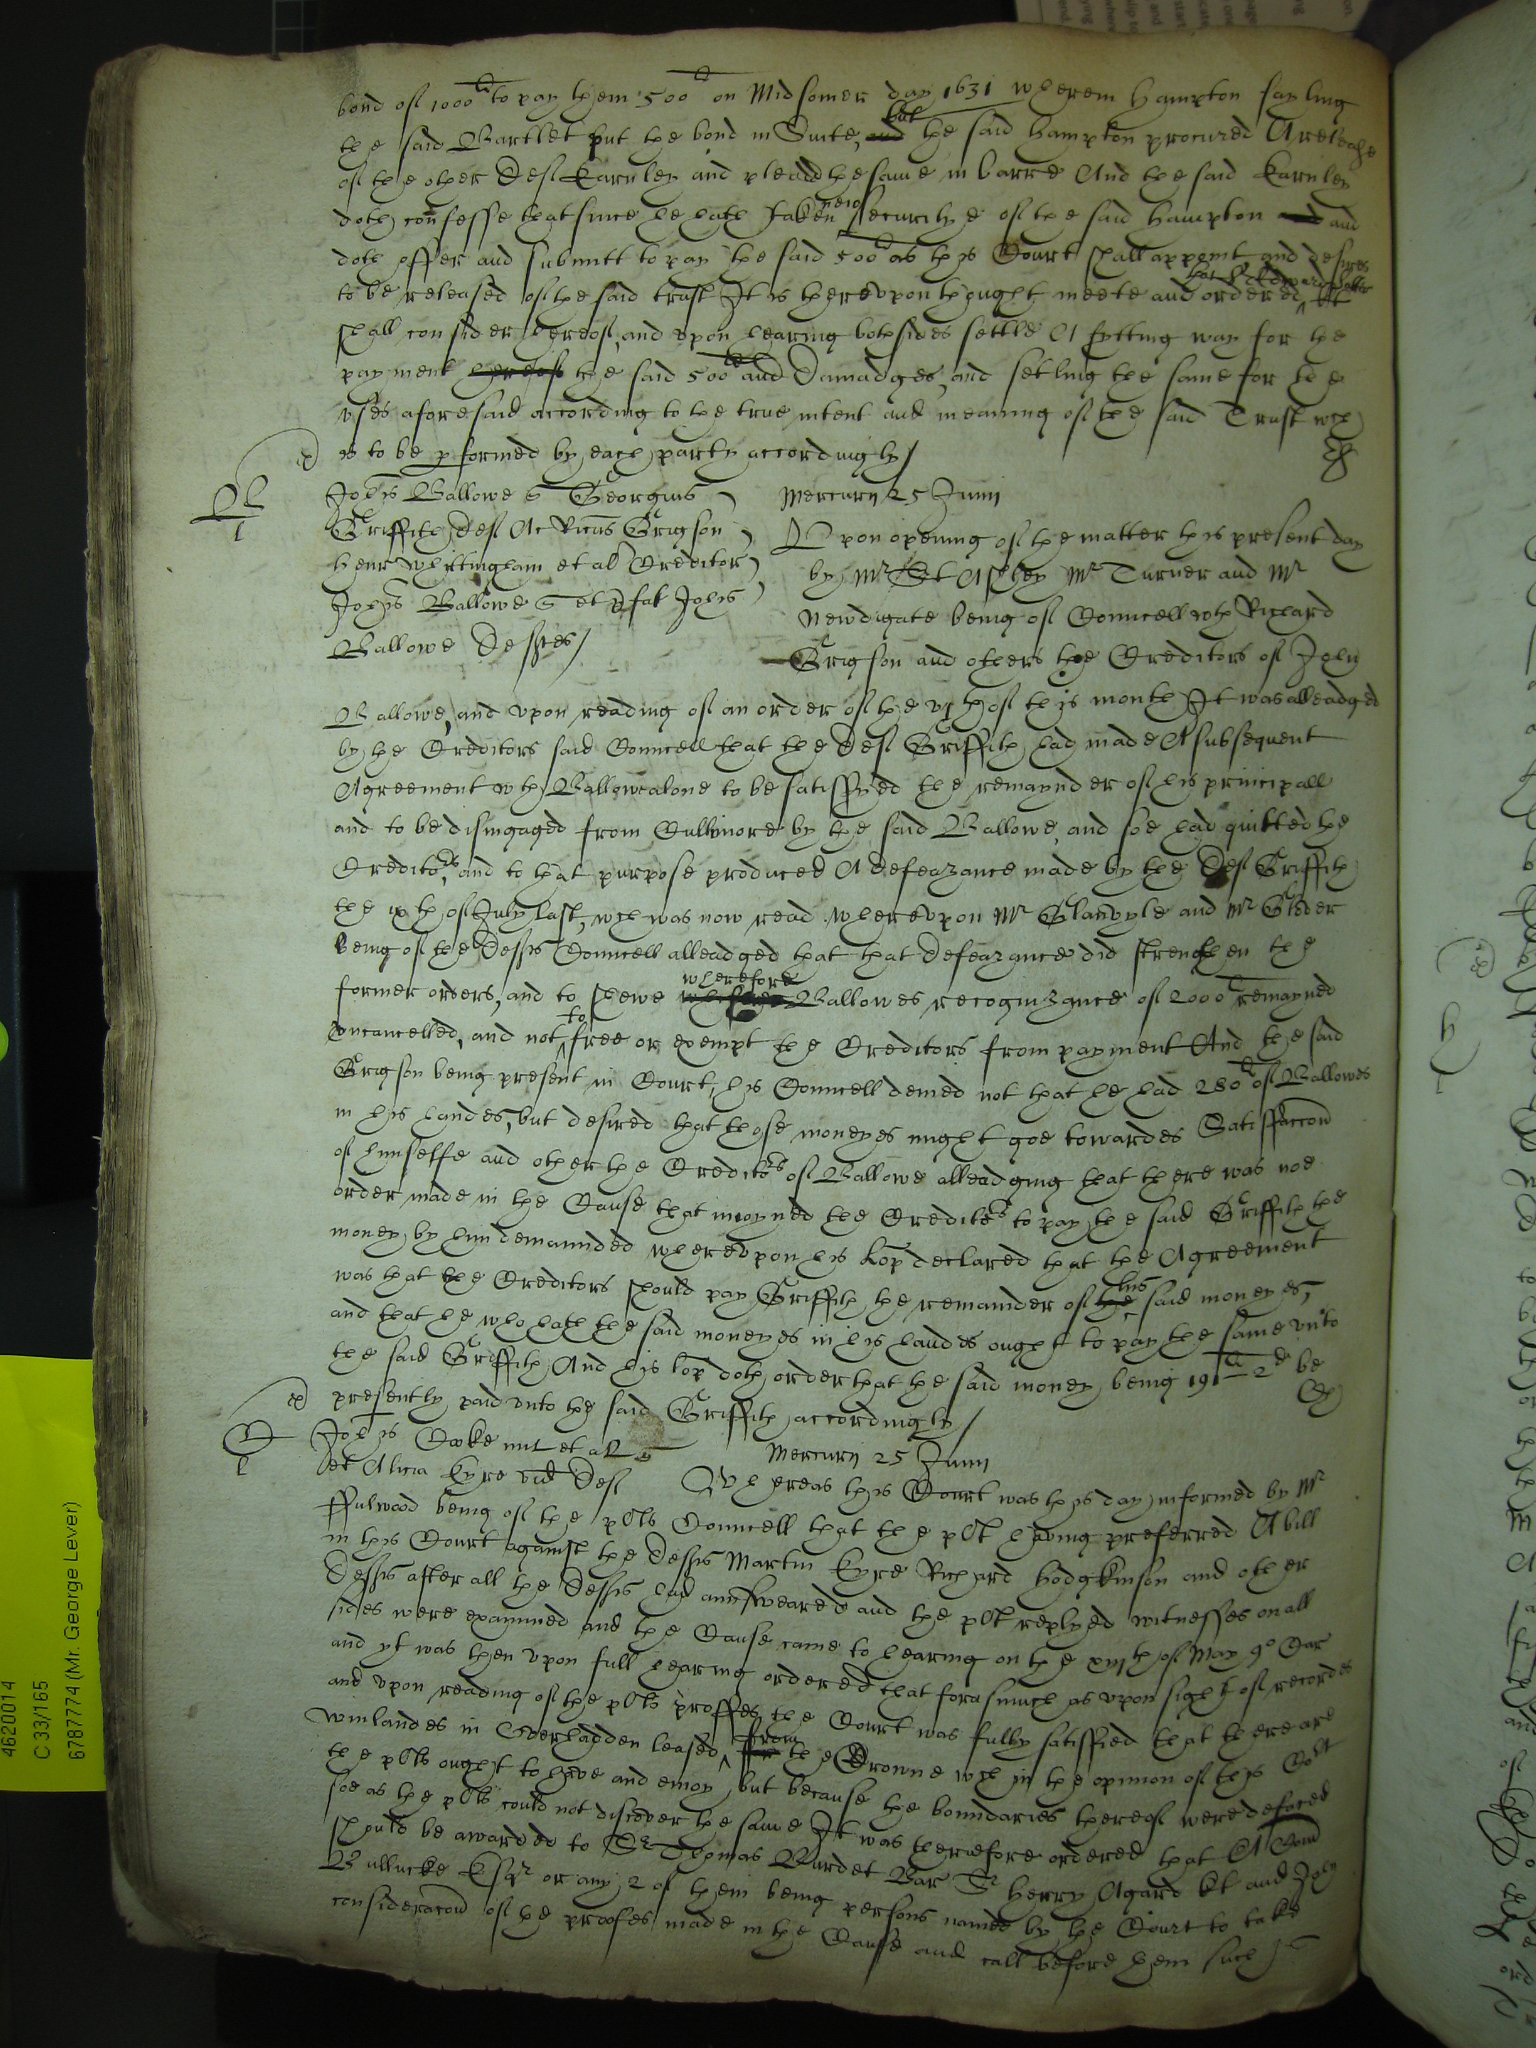 bond of 1000li to pay them 500li on Midsomer day 1631 wherein Hampton fayling
the said Bartlet put the bond in Suite, but the said Hampton procured A release
of the other def Earnley and pleadd the same in barre And the said Earnley
doth confesse that since he hath taken new securitye of the said Hampton and
doth offer and submitt to pay the said 500li as this Court shall appoint and desires
to be released of the said trust It is herevpon thought meete and ordered, that
shall consider hereof, and vpon hearing both sides settle A fytting way for the
payment thereof the said 500li and Damadges, and setling the same for the
vses aforesaid according to the true intent and meaning of the said Trust wch
is to be pformed by each party accordingly/
Johis Ballowe Georgius
Griffith, def Ac Ricus Grigson
Henr Whittingham et al Creditor
Johis Ballowe et Johis
Ballowe deftes/
Mercurij 25 Junij
Vpon opening of the matter this present day
by Mr St Ashley Mr Turner and Mr
Newdigate being of Councell wth Richard
Grigson and others the Creditors of John
Ballowe, and vpon reading of an order of the vjth of this month It was alleadged
by the Creditors said Councell that the def Griffith had made A subsequent
Agreement wth Ballowe alone to be satisfyed the remaynder of his principall
and to be disingaged from Cullimore by the said Ballowe, and soe had quitted the
Creditors, and to that purpose produced A defeazance made by the def Griffith
the ixth of July last, wch was now read wherevpon Mr Glanvyle and Mr Glover
being of the defts Councell alleadged that that defeazance did strengthen the
former orders, and to shewe wherefore Ballowes recognizance of 2000li remayned
vncancelled, and not to free or exempt the Creditors from payment And the said
Grigson being present in Court, his Councell denied not that he had 280li of Ballowes
in his handes, but desired that those moneyes might goe towardes Satisfaccon
of himselfe and other the Creditors of Ballowe alleadging that there was noe
order made in the Cause that inioyned the Creditors to pay the said Griffith the
money by him demaunded wherevpon his Lopp declared that the Agreement
was that the Creditors should pay Griffith the remainder of his said moneyes,
and that he who hath the said moneyes in his handes ought to pay the same vnto
the said Griffith, And his Lopp doth order that the said money being 191li 2d be
presently paid vnto the said Griffith accordingly/
Johis Cooke mil et al
et Alicia Eyre vid def
Mercurij 25 Junij
Whereas this Court was this day informed by Mr
ffulwood being of the plts Councell that the plt having preferred A bill
in this Court against the defts Martin Eyre Richard Hodgkinson and other
defts after all the defts had aunsweared and the plt replyed witnesses on all
sides were examined and the Cause came to hearing on the xiijth of May 9o Car
and yt was then vpon full hearing ordered that forasmuch as vpon sight of recordes
and vpon reading of the plts proffes the Court was fully satisfied that there are
winlandes in Overhadden leased, from the Crowne wch in the opinion of this Cort
the plts ought to have and enioy, but because the boundaries thereof were defaced
soe as the plts could not discover the same It was therefore ordered that A Com
should be awarded to Sr Thomas Burdet Bar Sr Henry Agard kt and John
Bullucke Esqr or any 2 of them being persons named by the Court to take
consideracon of the proofes made in the Cause and call before them such
4620014
C 33/165
67877774 (Mr. George Lever)